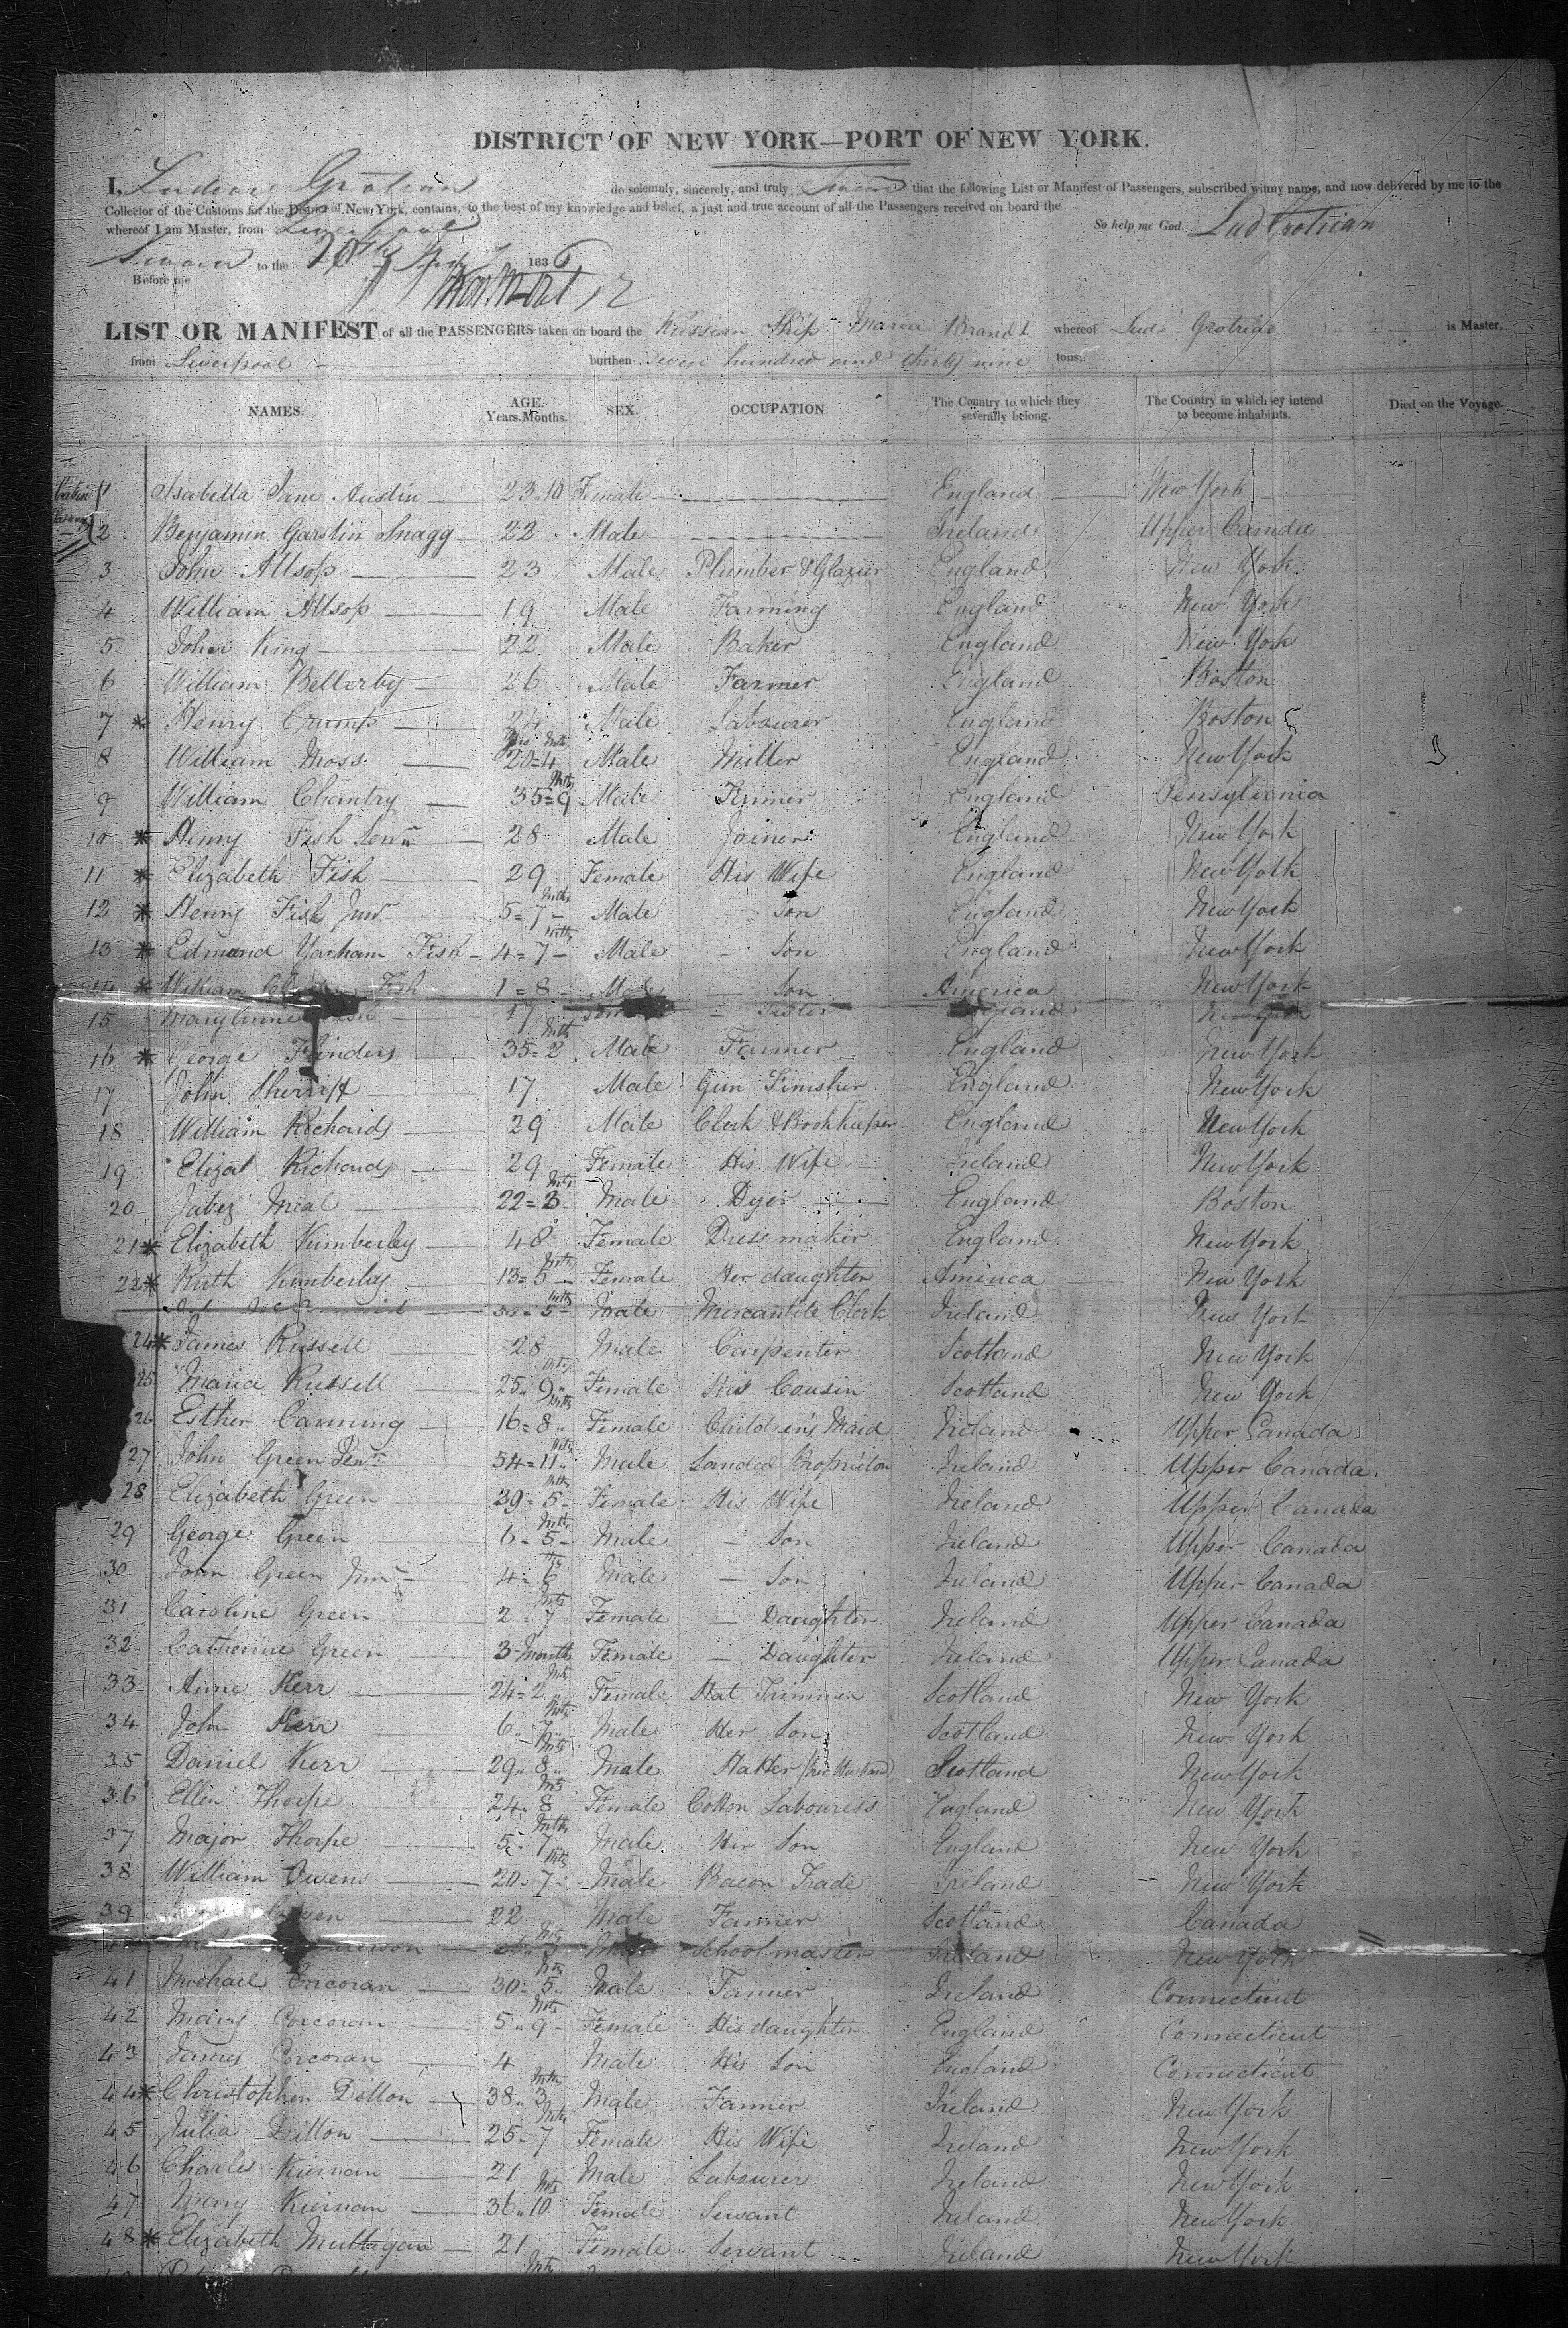 DISTRICT OF NEW YORK—PORT OF NEW YORK.
I, Grotrian do solemnly, sincerely, and truly Swear that the following List or Manifest of Passengers, subscribed with my name, and now delivered by me to the
Collector of the Customs for the District of New York, contains, to the best of my knowledge and belief, a just and true account of all the Passengers received on board the
whereof I am Master, from Liverpool So help me God. Lud Grotrian
Sworn to the 20th 1836
Before me
LIST OR MANIFEST of all the PASSENGERS taken on board the Russian Ship Maria Brandt whereof Lud Grotrian is Master,
from Liverpool burthen seven hundred and thirty nine tons,
NAMES. AGE. Years. Months. SEX. OCCUPATION. The Country to which they severally belong. The Country in which they intend to become inhabitants. Died on the Voyage.
Cabin 1 Isabella Jane Austin 23 " 10 Female England New York
2 Benjamin Garstin Snagg 22 Male Ireland Upper Canada
3 John Allsop 23 Male Plumber & Glazier England New York
4 William Allsop 19 Male Farming England New York
5 John King 22 Male Baker England New York
6 William Bellerby 26 Male Farmer England Boston
7 * Henry Crump 24 Male Labourer England Boston
8 William Moss 20 = 4 Mths Male Miller England New York
9 William Chantry 35 = 9 Mths Male Farmer England Pensylvania
10 * Henry Fish Senr 28 Male Joiner England New York
11 * Elizabeth Fish 29 Female His Wife England New York
12 * Henry Fish Junr 5 = 7 Mths Male Son England New York
13 * Edmund Yarham Fish 4 = 7 Mths Male Son England New York
14 * William Fish 1 = 8 Male Son America New York
15 17 Sister England New York
16 * George Flinders 35 = 2 Mths Male Farmer England New York
17 John Sherriff 17 Male Gun Finisher England New York
18 William Richards 29 Male Clerk & Bookkeeper England New York
19 Elizat Richards 29 Female His Wife Ireland New York
20 Jabez Meal 22 = 3 Mths Male Dyer England Boston
21 * Elizabeth Kimberley 48 Female Dressmaker England New York
22 * Ruth Kimberley 13 = 5 Mths Female Her daughter America New York
5 Mths Male Mercantile Clerk Ireland New York
24 * James Russell 28 Male Carpenter Scotland New York
25 Maria Russell 25 " 9 Mths Female His Cousin Scotland New York
26 Esther Canning 16 = 8 Mths Female Children's Maid Ireland Upper Canada
27 John Green Senr 54 = 11 Mths Male Landed Proprietor Ireland Upper Canada
28 Elizabeth Green 39 = 5 Mths Female His Wife Ireland Upper Canada
29 George Green 6 - 5 Mths Male Son Ireland Upper Canada
30 John Green Junr 4 - 6 Mths Male Son Ireland Upper Canada
31 Caroline Green 2 - 7 Mths Female Daughter Ireland Upper Canada
32 Catherine Green 3 Months Female Daughter Ireland Upper Canada
33 Anne Kerr 24 = 2 Mths Female Hat Trimmer Scotland New York
34 John Kerr 6 " 7 Mths Male Her Son Scotland New York
35 Daniel Kerr 29 " 8 Mths Male Hatter (her Husband) Scotland New York
36 Ellin Thorpe 24 " 8 Mths Female Cotton Labouress England New York
37 Major Thorpe 5 - 7 Mths Male Her Son England New York
38 William Owens 20 - 7 Mths Male Bacon Trade Ireland New York
39 22 Male Farmer Scotland Canada
Schoolmaster Ireland New York
41 Michael Corcoran 30 - 5 Mths Male Farmer Ireland Connecticut
42 Mary Corcoran 5 " 9 Mths Female His daughter England Connecticut
43 James Corcoran 4 Male His Son England Connecticut
44 * Christopher Dillon 38 " 3 Mths Male Farmer Ireland New York
45 Julia Dillon 25 - 7 Mths Female His Wife Ireland New York
46 Charles Kiernan 21 Male Labourer Ireland New York
47 Mary Kiernan 36 " 10 Mths Female Servant Ireland New York
48 * Elizabeth Mulligan 21 Female Servant Ireland New York